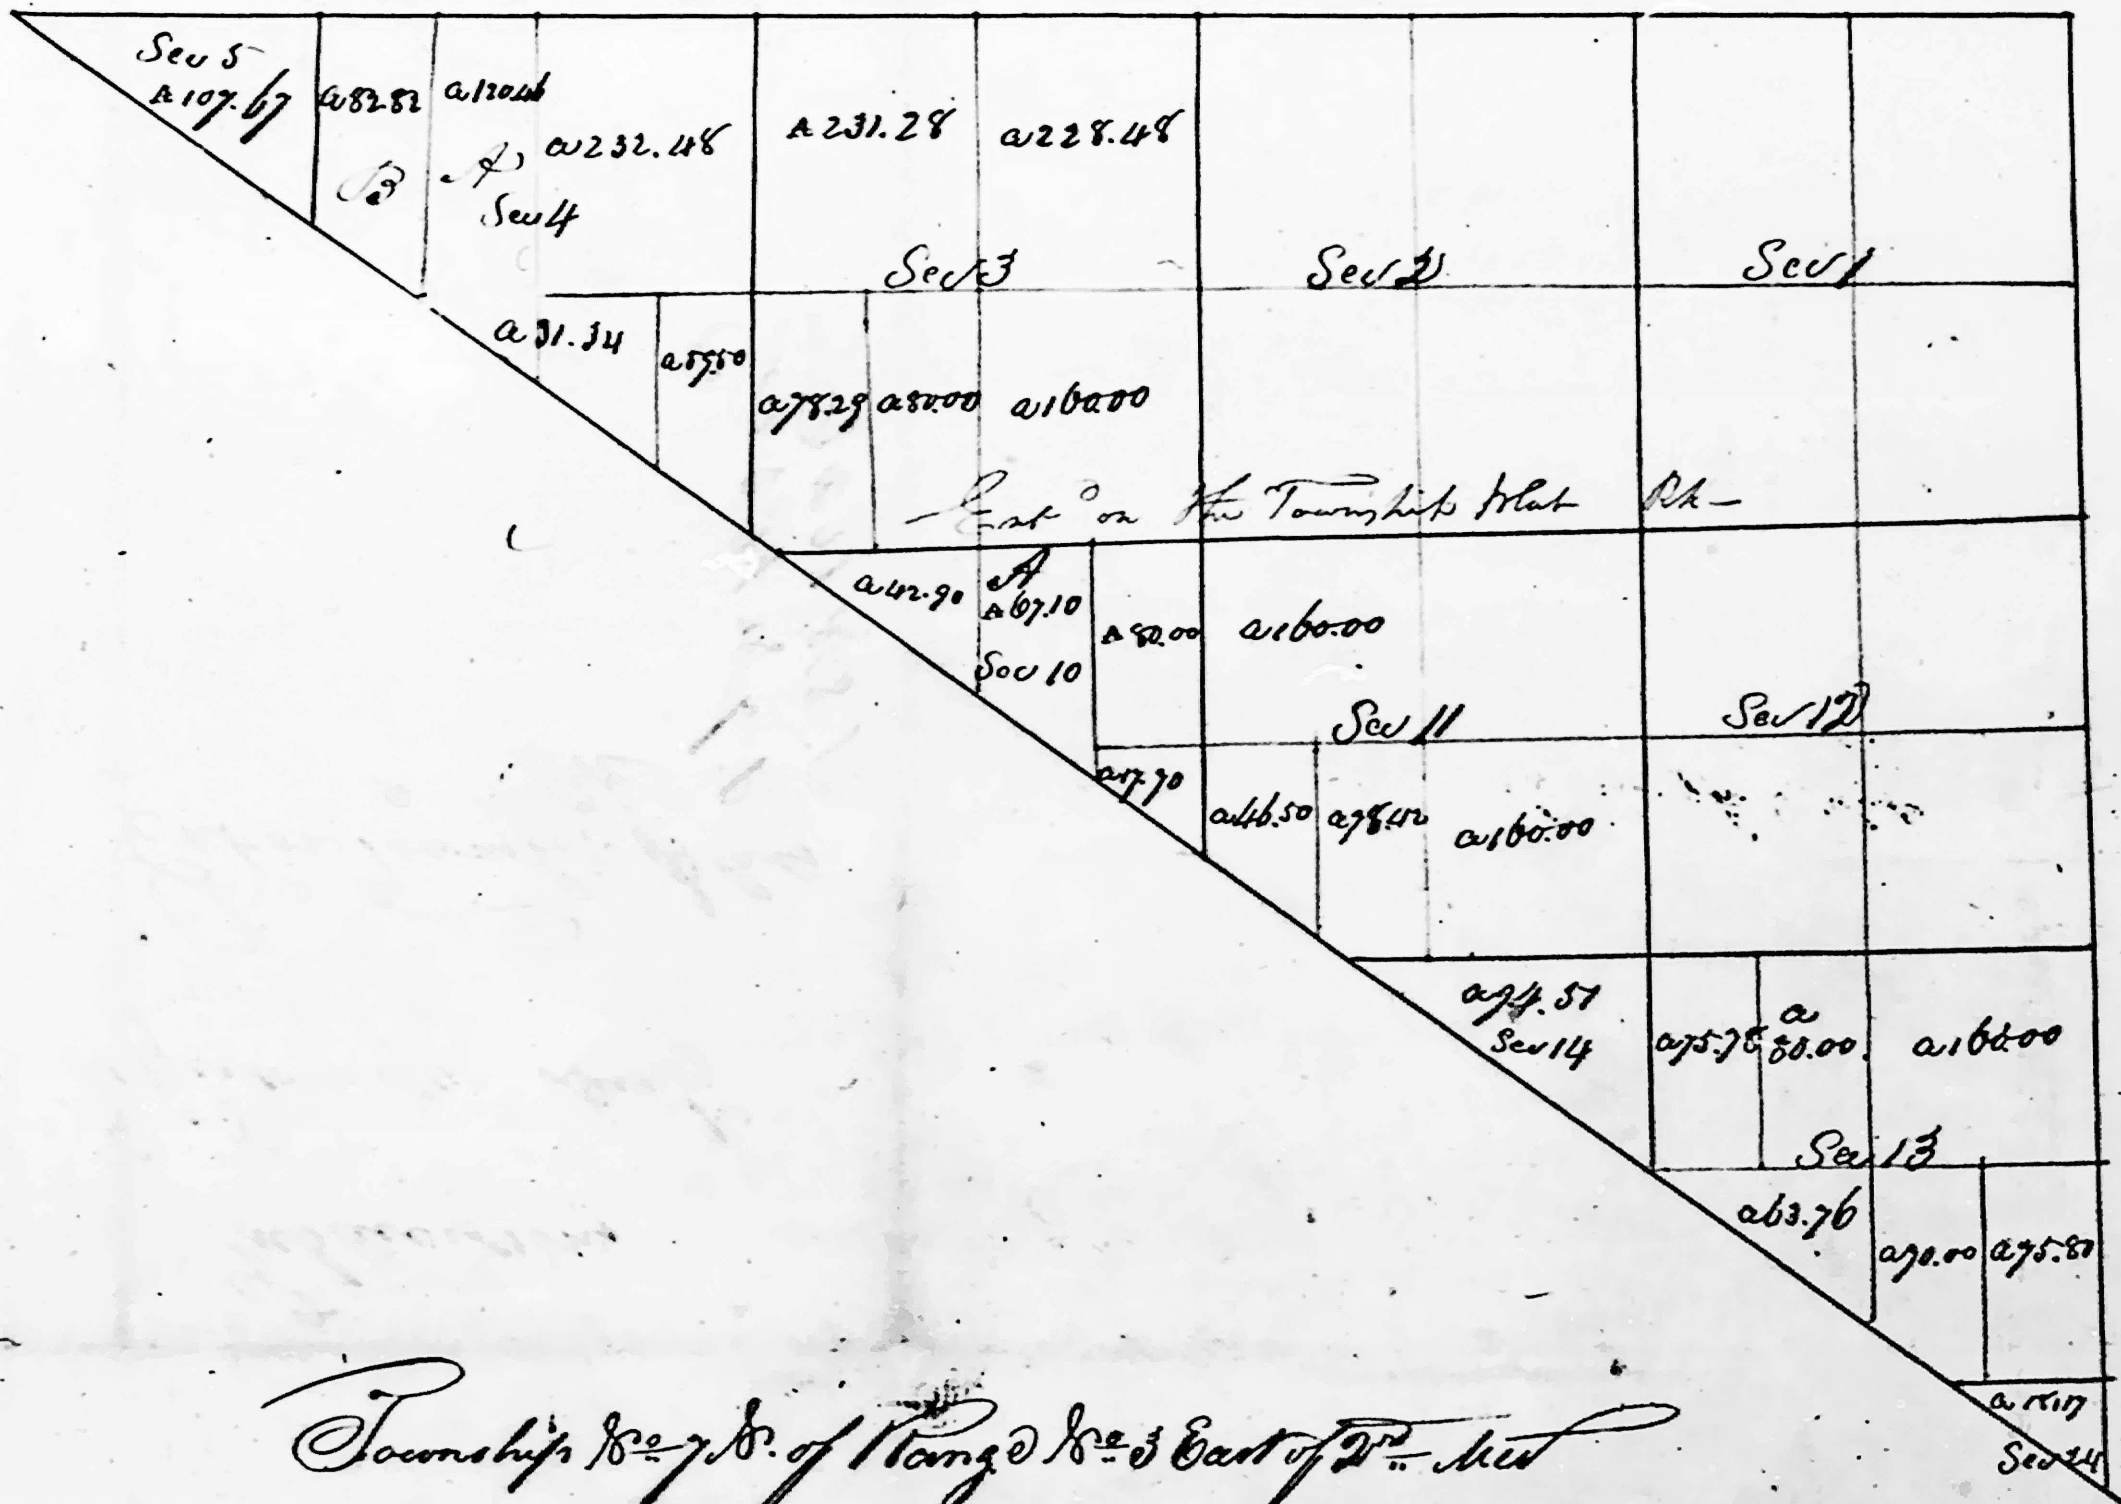 Sec 5
A 107.67
a 82.82
a 120.46
B
A
a 232.48
Sec 4
A 231.28
a 228.48
Sec 3
Sec 2
Sec 1
a 31.34
a 59.50
a 78.29
a 80.00
a 160.00
Ent on the Township Plat
a 42.90
A
A 67.10
Sec 10
A 80.00
a 160.00
Sec 11
Sec 12
a 17.70
a 46.50
a 78.42
a 160.00
a 74.51
Sec 14
a 75.78
a
80.00
a 160.00
Sec 13
a 63.76
a 70.00
a 75.80
Sec 24
Township No 7 N. of Range No 3 East of 2nd Mer